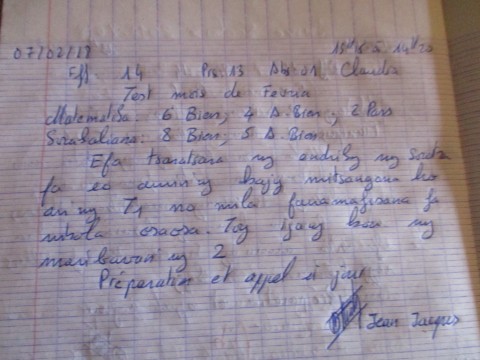 07/02/18
Eff 14 Pre 13 Abs 01 Claudia
Test mois de
Matematika: 6 Bien, 4 A. Bien, 2 Pass
Sorabaliana: 8 Bien, 5 A. Bien
Efa tsaratsara ny endriky ny
fa eo amin'ny kajy mitsangana ho
an'ny T1 no mila fanamafisana fa
mbola osaosa. Toy izany koa ny
marikavan'ny 2
Préparation et appel à jour
Jean Jacques